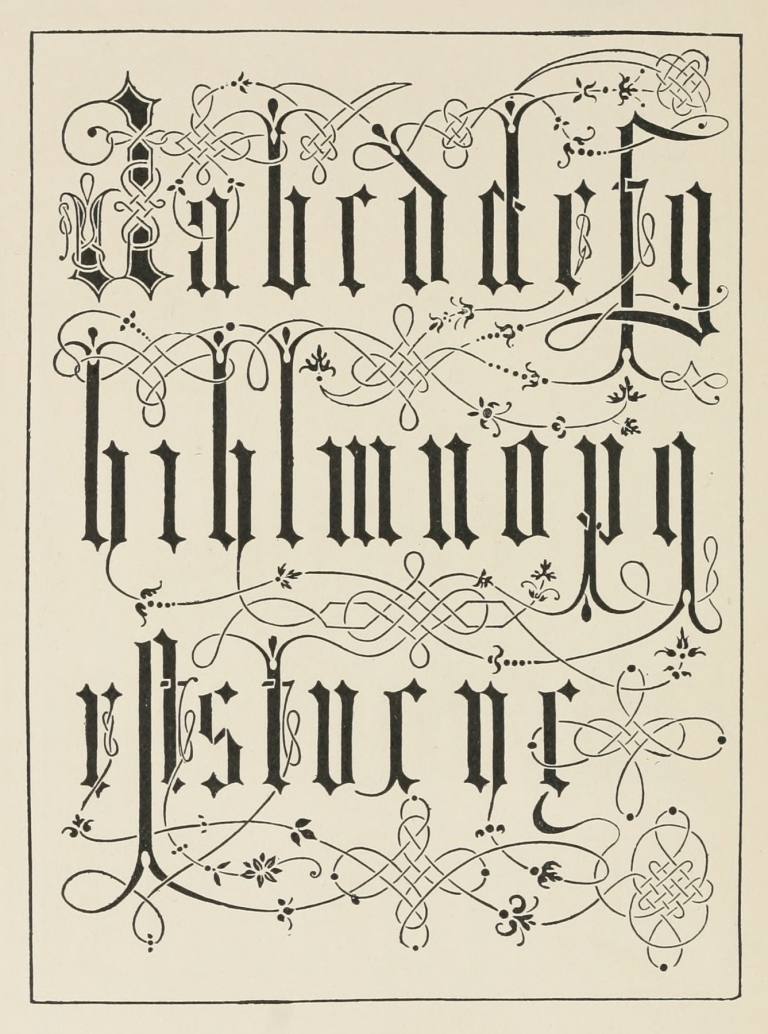 A a b c d d e f g
h i k l m n o p q
r ſ s t v x y z